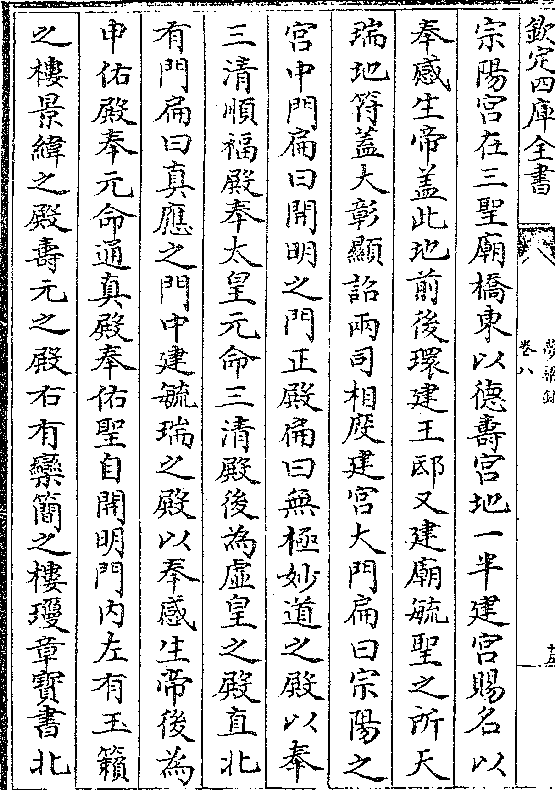 欽定四庫全書
卷八
宗陽宮在三聖廟橋東以德壽宮地一半建宮賜名以
奉感生帝蓋此地前後環建王邸又建廟毓聖之所天
瑞地符蓋大彰顯詔兩司相度建宮大門扁曰宗陽之
宮中門扁曰開明之門正殿扁曰無極妙道之殿以奉
三清順福殿奉太皇元命三清殿後為虛皇之殿直北
有門扁曰真應之門中建毓瑞之殿以奉感生帝後為
申佑殿奉元命通真殿奉佑聖自開明門內左有玉籟
之樓景緯之殿壽元之殿右有欒簡之樓瓊章寶書北